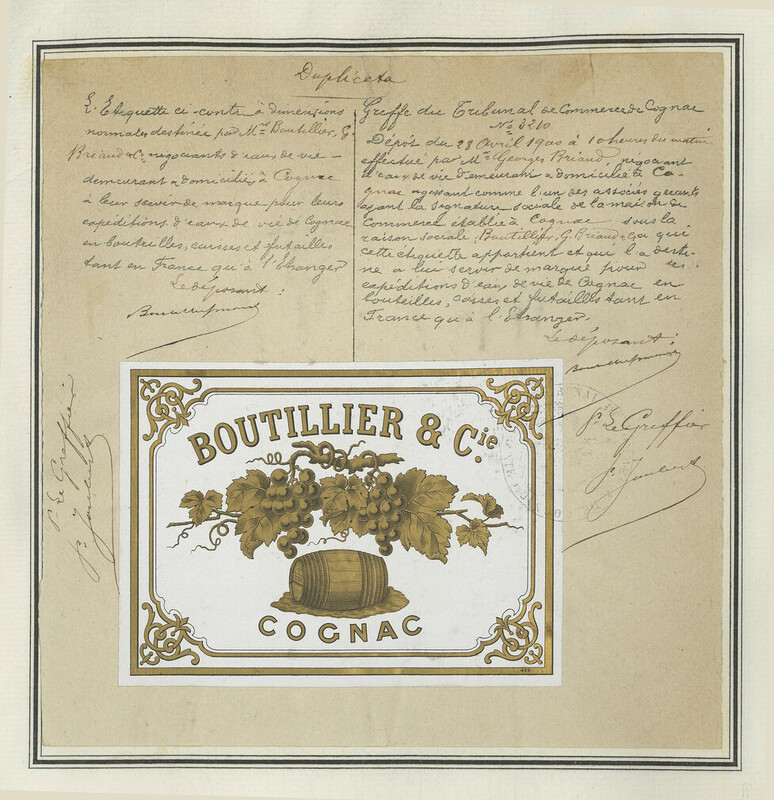 Duplicata
L'Etiquette ci-contre à dimensions
normales destinée par Mrs Boutillier, G.
Briaud & Co négociants d'eaux de vie -
demeurant & domiciliés à Cognac
à leur servir de marque pour leurs
expéditions d'eaux de vie de Cognac
en bouteilles, caisses et futailles
tant en France qu'à l'Etranger
Le déposant :
Greffe du Tribunal de Commerce de Cognac
No 3210
Dépôt du 28 Avril 1900 à 10 heures du matin
effectué par Mr Georges Briaud, négociant
d'eaux de vie demeurant & domicilié à Co-
gnac agissant comme l'un des associés gérants
ayant la signature sociale de la maison de
Commerce établie à Cognac sous la
raison sociale Boutillier, G. Briaud & Co à qui
cette étiquette appartient et qui l'a desti-
née à lui servir de marque pour ses
expéditions d'eaux de vie de Cognac en
bouteilles, caisses et futailles tant en
France qu'à l'Etranger.
Le déposant :
Pr Le Greffier
P. Joubert
Pr Le Greffier
P. Joubert
BOUTILLIER & Cie.
COGNAC